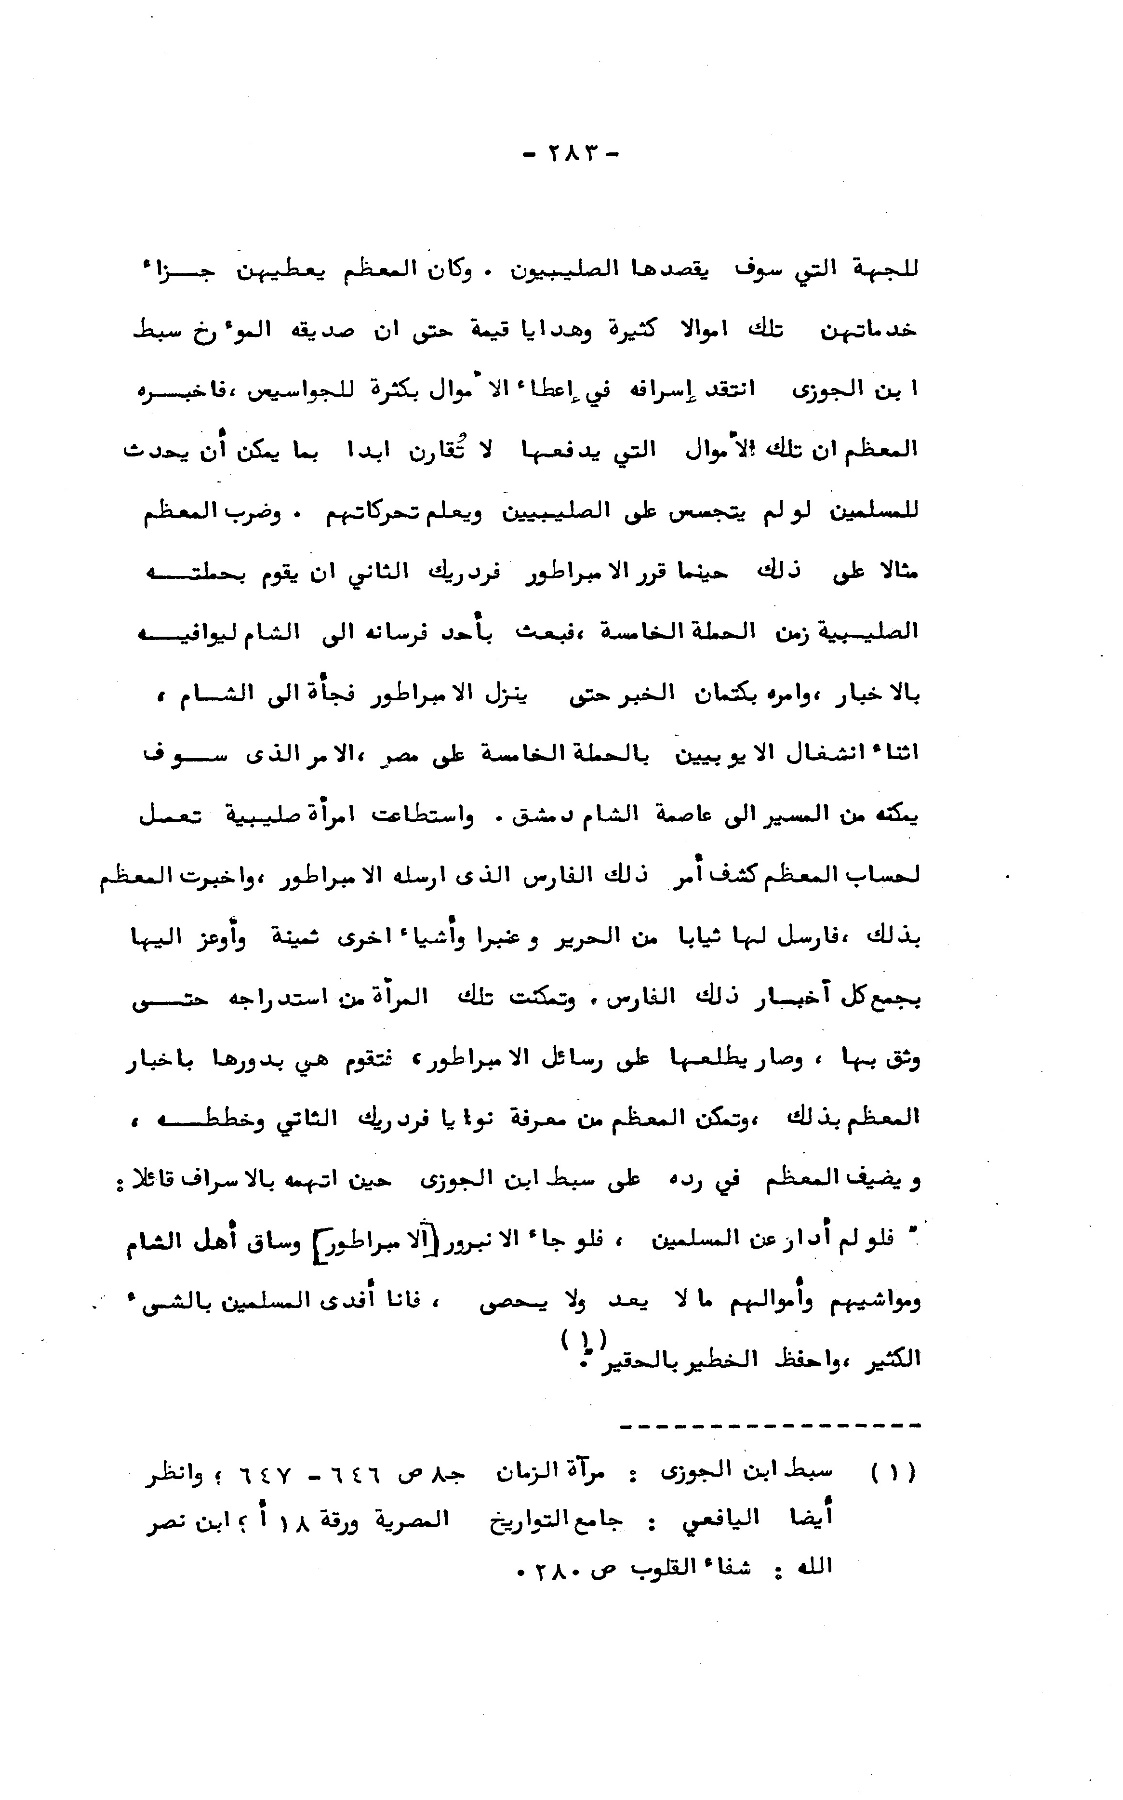 - ٢٨٣ -
للجهة التي سوف يقصدها الصليبيون . وكان المعظم يعطيهن جــزاء
خدماتهن تلك اموالا كثيرة وهدايا قيمة حتى ان صديقه المؤرخ سبط
ابن الجوزى انتقد إسرافه في إعطاء الأموال بكثرة للجواسيس ،فاخبــره
المعظم ان تلك الأموال التي يدفعها لا تُقارن ابدا بما يمكن أن يحدث
للمسلمين لو لم يتجسس على الصليبيين ويعلم تحركاتهم . وضرب المعظم
مثالا على ذلك حينما قرر الامبراطور فردريك الثاني ان يقوم بحملتــه
الصليبية زمن الحملة الخامسة ،فبعث بأحد فرسانه الى الشام ليوافيــه
بالاخبار ،وامره بكتمان الخبر حتى ينزل الامبراطور فجأة الى الشــام ،
اثناء انشغال الايوبيين بالحملة الخامسة على مصر ،الامر الذى ســوف
يمكنه من المسير الى عاصمة الشام دمشق . واستطاعت امرأة صليبية تعمل
لحساب المعظم كشف أمر ذلك الفارس الذى ارسله الامبراطور ،واخبرت المعظم
بذلك ،فارسل لها ثيابا من الحرير وعنبرا وأشياء اخرى ثمينة وأوعز اليها
بجمع كل أخبــار ذلك الفارس . وتمكنت تلك المرأة من استدراجه حتــى
وثق بها ، وصار يطلعها على رسائل الامبراطور، فتقوم هي بدورها باخبار
المعظم بذلك ،وتمكن المعظم من معرفة نوايا فردريك الثاني وخططــه ،
ويضيف المعظم في رده على سبط ابن الجوزى حين اتهمه بالاسراف قائلا :
" فلو لم أدار عن المسلمين ، فلو جاء الانبرور [الامبراطور] وساق أهل الشام
ومواشيهم وأموالهم ما لا يعد ولا يحصى ، فانا أفدى المسلمين بالشىء
الكثير ،واحفظ الخطير بالحقير". (١)
(١) سبط ابن الجوزى : مرآة الزمان جـ٨ ص ٦٤٦ - ٦٤٧ ؛ وانظر
أيضا اليافعي : جامع التواريخ المصرية ورقة ١٨ أ ؛ ابن نصر
الله : شفاء القلوب ص ٢٨٠ .